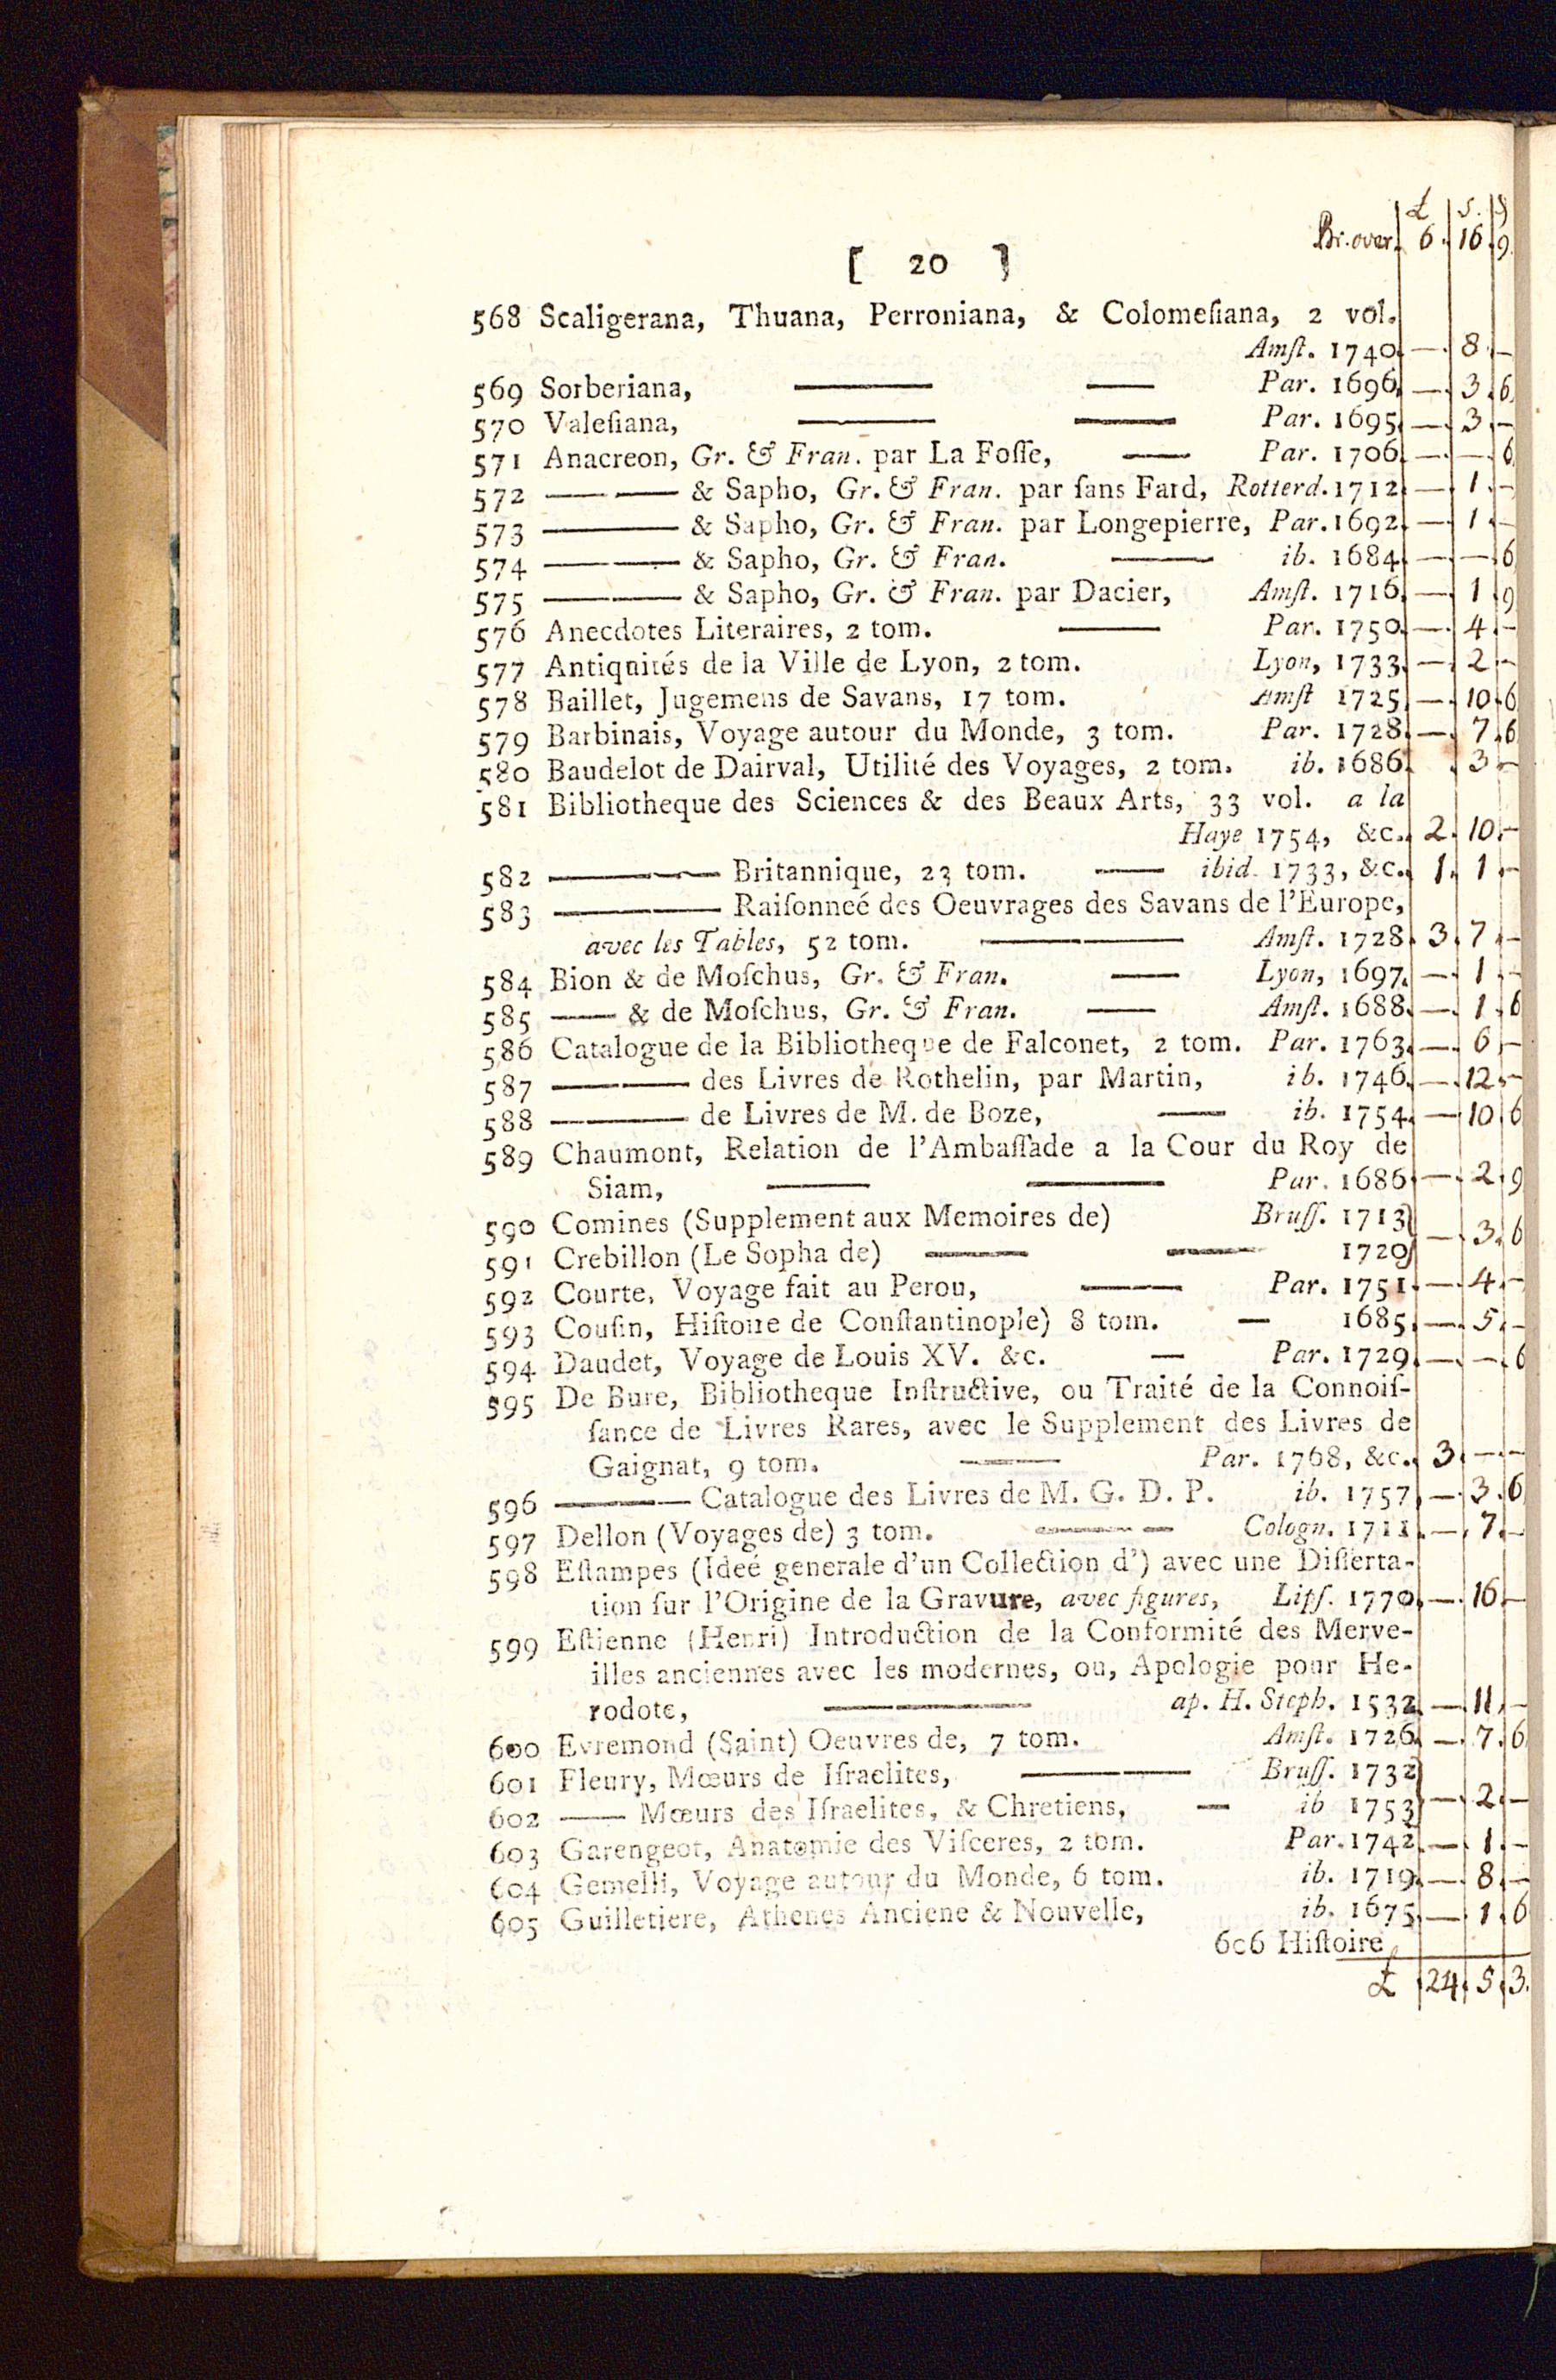 £ s. d
Br. over. 6. 16. 9.
[ 20 ]
568 Scaligerana, Thuana, Perroniana, & Colomeſiana, 2 vol.
Amſt. 1740. — . 8 . —
569 Sorberiana, —— — Par. 1696. — . 3 . 6.
570 Valeſiana, —— — Par. 1695. — . 3 . —
571 Anacreon, Gr. & Fran. par La Foſſe, — Par. 1706. — . — . 6
572 —— — & Sapho, Gr. & Fran. par ſans Fard, Rotterd. 1712. — . 1 . —
573 —— & Sapho, Gr. & Fran. par Longepierre, Par. 1692. — . 1 . —
574 —— — & Sapho, Gr. & Fran. — ib. 1684. — . — . 6
575 —— — & Sapho, Gr. & Fran. par Dacier, Amſt. 1716. — . 1 . 9
576 Anecdotes Literaires, 2 tom. — Par. 1750. — . 4 . —
577 Antiqnités de la Ville de Lyon, 2 tom. Lyon, 1733. — . 2 . —
578 Baillet, Jugemens de Savans, 17 tom. Amſt 1725. — . 10 . 6
579 Barbinais, Voyage autour du Monde, 3 tom. Par. 1728. — . 7 . 6
580 Baudelot de Dairval, Utilité des Voyages, 2 tom. ib. 1686. . 3 . —
581 Bibliotheque des Sciences & des Beaux Arts, 33 vol. a la
Haye 1754, &c. 2 . 10 . —
582 —— — Britannique, 23 tom. — ibid. 1733, &c. 1 . 1 . —
583 —— — Raiſonneé des Oeuvrages des Savans de l'Europe,
avec les Tables, 52 tom. —— Amſt. 1728. 3 . 7 . —
584 Bion & de Moſchus, Gr. & Fran. — Lyon, 1697. — . 1 . —
585 — & de Moſchus, Gr. & Fran. — Amſt. 1688. — . 1 . 6
586 Catalogue de la Bibliotheque de Falconet, 2 tom. Par. 1763. — . 6 . —
587 —— — des Livres de Rothelin, par Martin, ib. 1746. — . 12 . —
588 —— — de Livres de M. de Boze, — ib. 1754. — . 10 . 6
589 Chaumont, Relation de l'Ambaſſade a la Cour du Roy de
Siam, — —— Par. 1686. — . 2 . 9
590 Comines (Supplement aux Memoires de) Bruſſ. 1713}
591 Crebillon (Le Sopha de) — — 1729} — . 3 . 6
592 Courte, Voyage fait au Perou, — Par. 1751. — . 4 . —
593 Couſin, Hiſtoire de Conſtantinople) 8 tom. — 1685. — . 5 . —
594 Daudet, Voyage de Louis XV. &c. — Par. 1729. — . — . 6
595 De Bure, Bibliotheque Inſtructive, ou Traité de la Connoiſ-
ſance de Livres Rares, avec le Supplement des Livres de
Gaignat, 9 tom. — Par. 1768, &c. 3 . — . —
596 —— — Catalogue des Livres de M. G. D. P. ib. 1757. — . 3 . 6
597 Dellon (Voyages de) 3 tom. — — Cologn. 1711. — . 7 . —
598 Eſtampes (Ideé generale d'un Collection d') avec une Diſſerta-
tion ſur l'Origine de la Gravure, avec figures, Lipſ. 1770. — . 16 . —
599 Eſtienne (Henri) Introduction de la Conformité des Merve-
illes anciennes avec les modernes, ou, Apologie pour He-
rodote, —— ap. H. Steph. 1532 — . 11 . —
600 Evremond (Saint) Oeuvres de, 7 tom. Amſt. 1726. — . 7 . 6
601 Fleury, Mœurs de Iſraelites, —— Bruſſ. 1732}
602 — Mœurs des Iſraelites, & Chretiens, — ib 1753} — . 2 . —
603 Garengeot, Anatomie des Viſceres, 2 tom. Par. 1742. — . 1 . —
604 Gemelli, Voyage autour du Monde, 6 tom. ib. 1719. — . 8 . —
605 Guilletiere, Athenes Anciene & Nouvelle, ib. 1675. — . 1 . 6
606 Hiſtoire
£ 24 . 5 . 3.